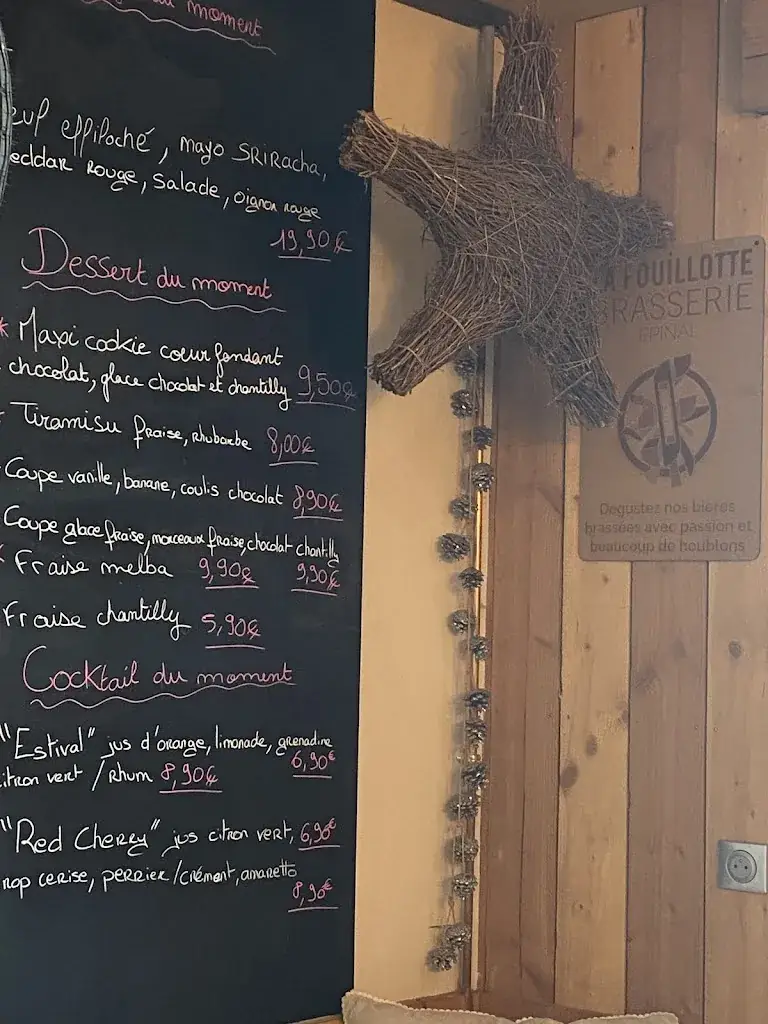 du moment
effiloché, mayo SRIRacha,
eddar Rouge, salade, oignon rouge
19,90€
Dessert du moment
* Maxi cookie coeur fondant
chocolat, glace chocolat et chantilly 9,50€
Tiramisu fraise, rhubarbe 8,00€
Coupe vanille, banane, coulis chocolat 8,90€
Coupe glace fraise, morceaux fraise, chocolat chantilly
9,90€
* Fraise melba 9,90€
Fraise chantilly 5,90€
Cocktail du moment
"Estival" jus d'orange, limonade, grenadine
6,90€
itron vert / Rhum 8,90€
"Red Cherry" jus citron vert, 6,90€
rop cerise, perrier/crémant, amaretto
8,90€
A FOUILLOTTE
BRASSERIE
EPINAL
Degustez nos bières
brassées avec passion et
beaucoup de houblons